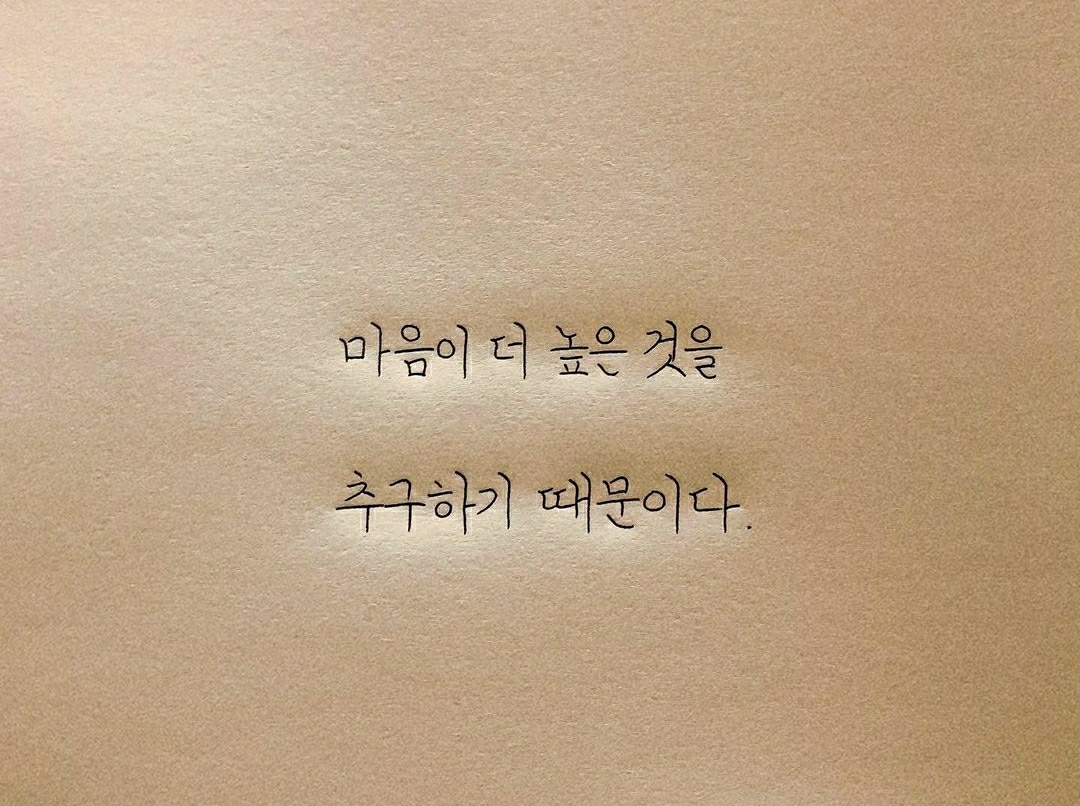 마음이 더 높은 것을
추구하기 때문이다.